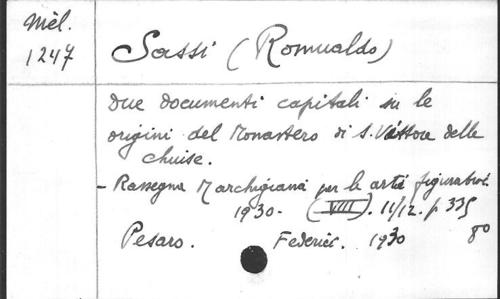 Mèl.
1247
Sassi (Romualdo)
Due documenti capitali su le
origini del Monastero di S. Vittore delle
chiuse.
- Rassegna Marchigiana per le arti figurative.
1930 - (VIII). 11/12. p 335
Pesaro. Federici. 1930 80